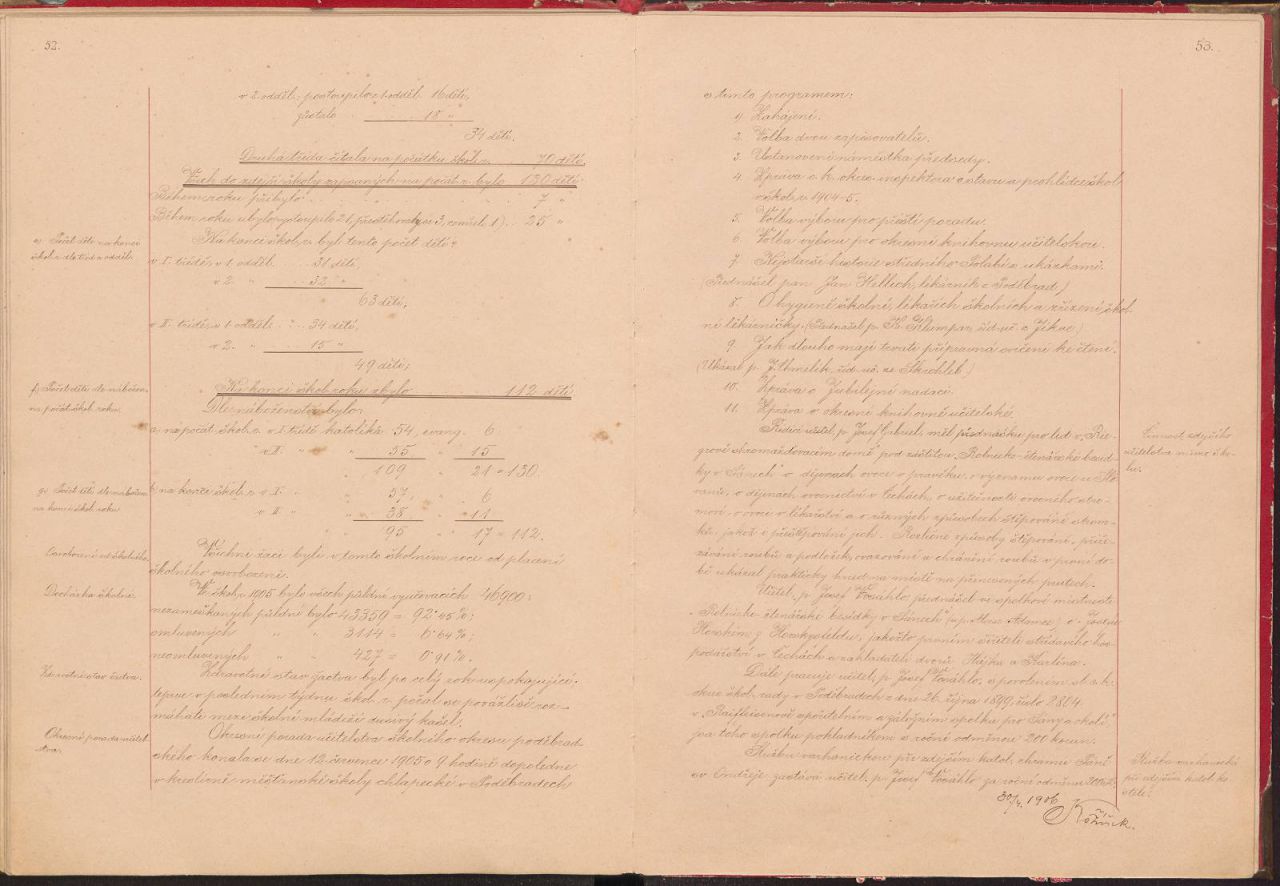 52.
v 2. odděl. postoupilo z 1. odděl. 16 dětí,
zůstalo 18 "
34 dětí.
Druhá třída čítala na počátku škol. r. 70 dětí.
Všech do zdejší školy zapsaných na počát. r. bylo 130 dětí.
Během roku přibylo 7 "
Během roku ubylo, vystoupilo 21, zemřelo 1) .. 25 "
e) Počet dětí na konci
škol. r. dle tříd a odděl.
Na konci škol. r. byl tento počet dětí:
v I. třídě v 1. odděl. 31 dětí,
v 2. " 32 "
63 dětí;
v II. třídě v 1. odděl. 34 dětí,
v 2. " 15 "
49 dětí;
f) Počet dětí dle nábožen.
na počát. škol. roku.
Na konci škol. roku zbylo 112 dětí
Dle náboženství bylo:
a, na počát. škol. r. v I. třídě katolíků 54, evang. 6
v II. " " 55 " 15
109 21 = 130.
g) Počet dětí dle nábožen.
na konci škol. roku.
b, na konci škol. r. v I. " 57, " 6
v II. " " 38. " 11
95 17 = 112.
Osvobození od školného.
Všichni žáci byli v tomto školním roce od placení
školného osvobozeni.
Docházka školní.
V škol. r. 1905 bylo všech půldní vyučovacích 46900:
nezameškaných půldní bylo 43359 = 92·45%;
omluvených " " 3114 = 6·64%;
neomluvených " " 427 = 0·91%.
Zdravotní stav žactva.
Zdravotní stav žactva byl po celý rok uspokojující.
teprve v posledním týdnu škol. r. počal se povážlivě roz-
máhati mezi školní mládeží dusivý kašel.
Okresní porada učitel-
stva.
Okresní porada učitelstva školního okresu poděbrad-
ského konala se dne 12. července 1905 o 9. hodině dopolední
v kreslírně měšťanské školy chlapecké v Poděbradech
53.
s tímto programem:
1. Zahájení.
2. Volba dvou zapisovatelů.
3. Ustanovení náměstka předsedy.
4. Zpráva c. k. okres. inspektora o stavu a prohlídce škol
v škol. r. 1904-5.
5. Volba výboru pro příští poradu.
6. Volba výboru pro okresní knihovnu učitelskou.
7. Nejstarší historie středního Polabí s ukázkami.
(Přednášel pan Jan Hellich, lékárník z Poděbrad.)
8. O hygieně školní, lékařích školních a zřízení škol-
ní lékárničky. (Přednášel p. K. Klumpar, říd. uč. z Jíkve.)
9. Jak dlouho mají trvati přípravná cvičení ke čtení.
(Ukázal p. J. Chmelík, říd. uč. ze Skochleb.)
10. Zpráva o Jubilejní nadaci.
11. Zpráva o okresní knihovně učitelské.
Činnost zdejšího
učitelstva mimo ško-
lu.
Řídící učitel, p. Josef Gabriel, měl přednášku pro lid v "Rie-
grově shromažďovacím domě" pod záštitou "Rolnicko-čtenářské besíd-
ky v Sánech" o dějinách ovoce v pravěku, o významu ovoce u Slo-
vanů, o dějinách ovocnictví v Čechách, o užitečnosti ovocného stro-
moví, o ovoci v lékařství a o různých způsobech štěpování stromo-
ků, jakož i přeštěpování jich. Rozličné způsoby štěpování, přiře-
závání roubů a podložek, uvazování a chránění roubů v první do-
bě ukázal prakticky hned na místě na přinesených prutech.
Učitel, p. Josef Vosáhlo přednášel ve spolkové místnosti
"Rolnicko-čtenářské besídky v Sánech" (u p. Aloise Adamce) o Janu
Horském z Horskysfeldu, jakožto prvním šiřiteli střídavého hos-
podářství v Čechách a zakladateli dvorů Hájku a Karlína.
Dále pracuje učitel, p. Josef Vosáhlo, s povolením sl. c. k.
okres. škol. rady v Poděbradech z dne 26. října 1899, číslo 2804
v "Raiffeisenově spořitelním a záložním spolku pro Sány a okolí"
jsa toho spolku pokladníkem s roční odměnou 200 korun.
Služba varhanická
při zdejším katol. ko-
stele.
Službu varhanickou při zdejším katol. chrámu Páně
sv. Ondřeje zastává učitel, p. Josef Vosáhlo za roční odměnu
30/4. 1906